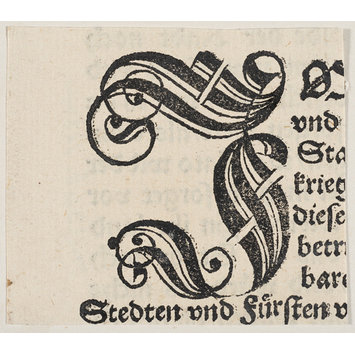 JOS
vnd
Sta
krieg
diese
betr
bare
Stedten vnd Fürsten v